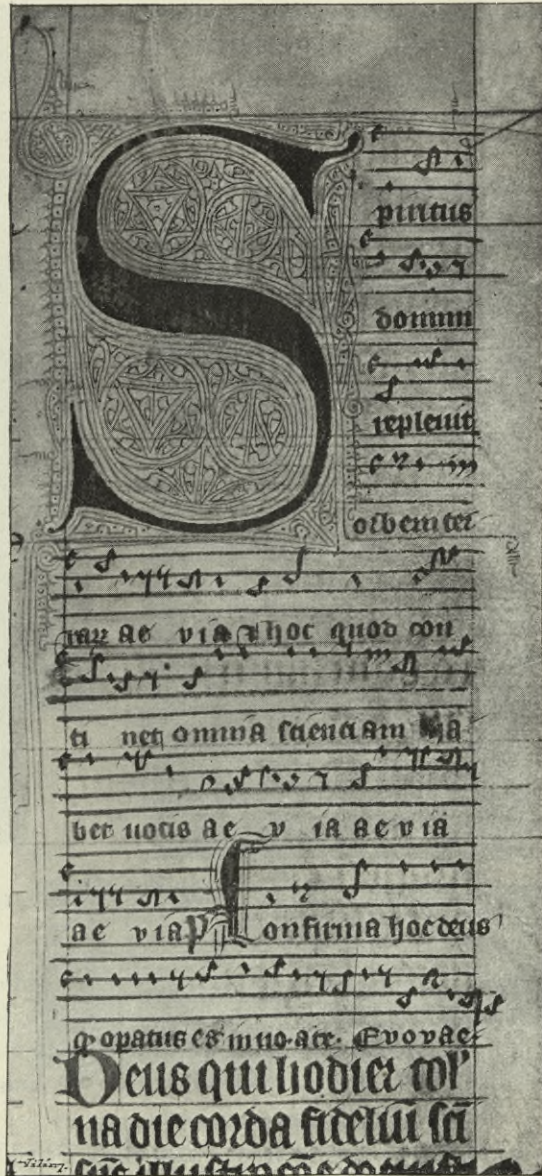 Spiritus
domini
replevit
orbem ter
rarum ae v ia et hoc quod con
ti net omnia scienciam ha
bet uocis ae v ia ae v ia
ae v ia Confirma hoc deus
q opatus es in uo. ate. Evovae.
Deus qui hodier
na die corda fideliū sc̄i